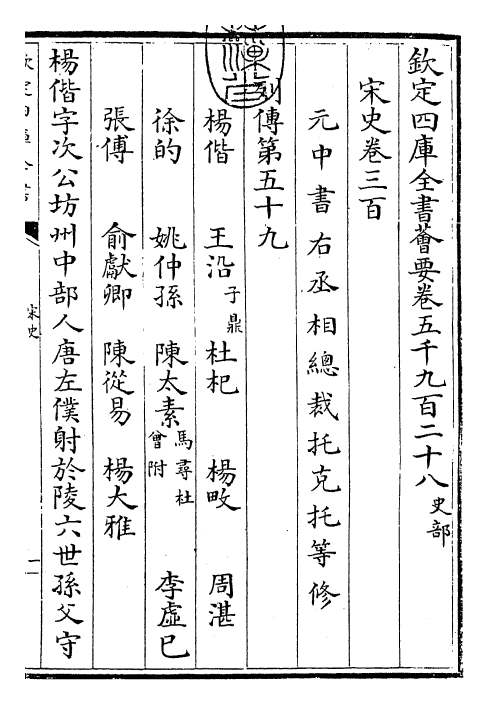 欽定四庫全書薈要卷五千九百二十八史部
宋史卷三百
元中書右丞相總裁托克托等修
列傳第五十九
楊偕 王沿子鼎 杜杞 楊畋 周湛
徐的 姚仲孫 陳太素馬尋杜曾附 李虛已
張傅 俞獻卿 陳從易 楊大雅
楊偕字次公坊州中部人唐左僕射於陵六世孫父守
宋史
一